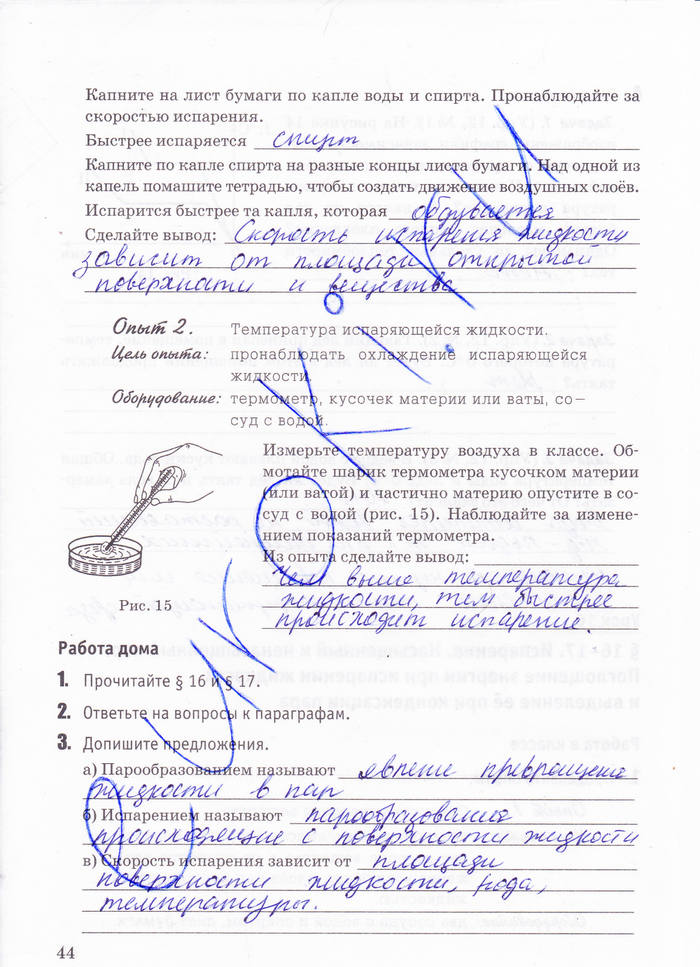 Капните на лист бумаги по капле воды и спирта. Пронаблюдайте за
скоростью испарения.
Быстрее испаряется спирт
Капните по капле спирта на разные концы листа бумаги. Над одной из
капель помашите тетрадью, чтобы создать движение воздушных слоёв.
Испарится быстрее та капля, которая обдувается
Сделайте вывод: Скорость испарения жидкости
зависит от площади открытой
поверхности и вещества
Опыт 2. Температура испаряющейся жидкости.
Цель опыта: пронаблюдать охлаждение испаряющейся
жидкости.
Оборудование: термометр, кусочек материи или ваты, со–
суд с водой.
Измерьте температуру воздуха в классе. Об-
мотайте шарик термометра кусочком материи
(или ватой) и частично материю опустите в со-
суд с водой (рис. 15). Наблюдайте за измене-
нием показаний термометра.
Из опыта сделайте вывод:
Чем выше температура
жидкости, тем быстрее
происходит испарение.
Рис. 15
Работа дома
1. Прочитайте § 16 и § 17.
2. Ответьте на вопросы к параграфам.
3. Допишите предложения.
а) Парообразованием называют явление превращения
жидкости в пар
б) Испарением называют парообразование
происходящие с поверхности жидкости
в) Скорость испарения зависит от площади
поверхности жидкости, рода,
температуры.
44